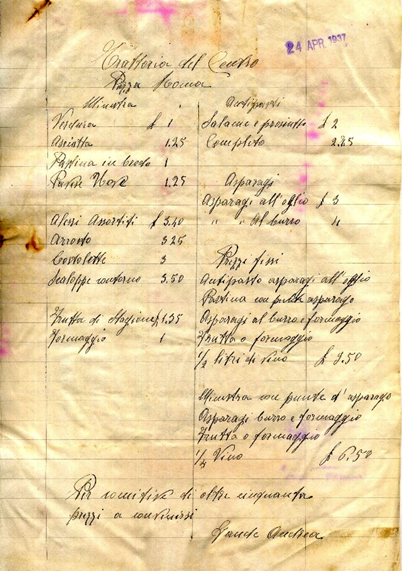 24 APR. 1937
Trattoria del Centro
Piazza Roma
Minestra
Verdura £ 1
Asciutta 1.25
Pastina in brodo 1
1,25
Alessi Assortiti £ 3.40
Arrosto 3 25
Costolette 3
Scaloppe contorno 3.50
Frutta di stagione £ 1.35
Formaggio 1
Antipasti
Salame e prosciutto £ 2
Completo 2.25
Asparagi
Asparagi all'oglio £ 3
" " al burro 4
Prezzi fissi
Antipasto asparagi all'oglio
Pastina con punte asparago
Asparagi al burro e formaggio
Frutta o formaggio
1/2 litri di vino £ 9.50
Minestra con punte d'asparago
Asparagi burro e formaggio
Frutta o formaggio
1/4 Vino £ 6.50
Per comitive di oltre cinquanta
prezzi a convenirsi
Andrea